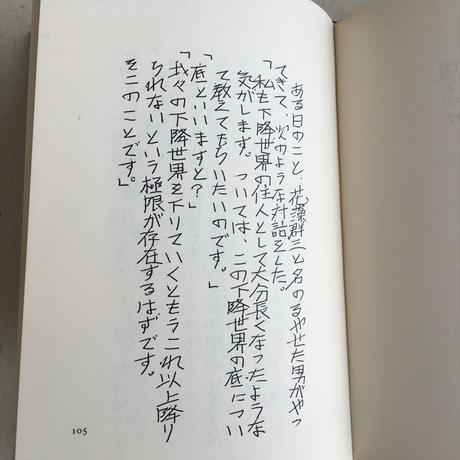 ある日のこと、花藻群三と名のるやせた男がやっ
てきて、次のような対話をした。
「私も下降世界の住人として大分長くなったような
気がします。ついては、この下降世界の底につい
て教えてもらいたいのです。」
「底といいますと?」
「我々の下降世界を下りていくともうこれ以上降り
られないという極限が存在するはずです。
そこのことです。」
105